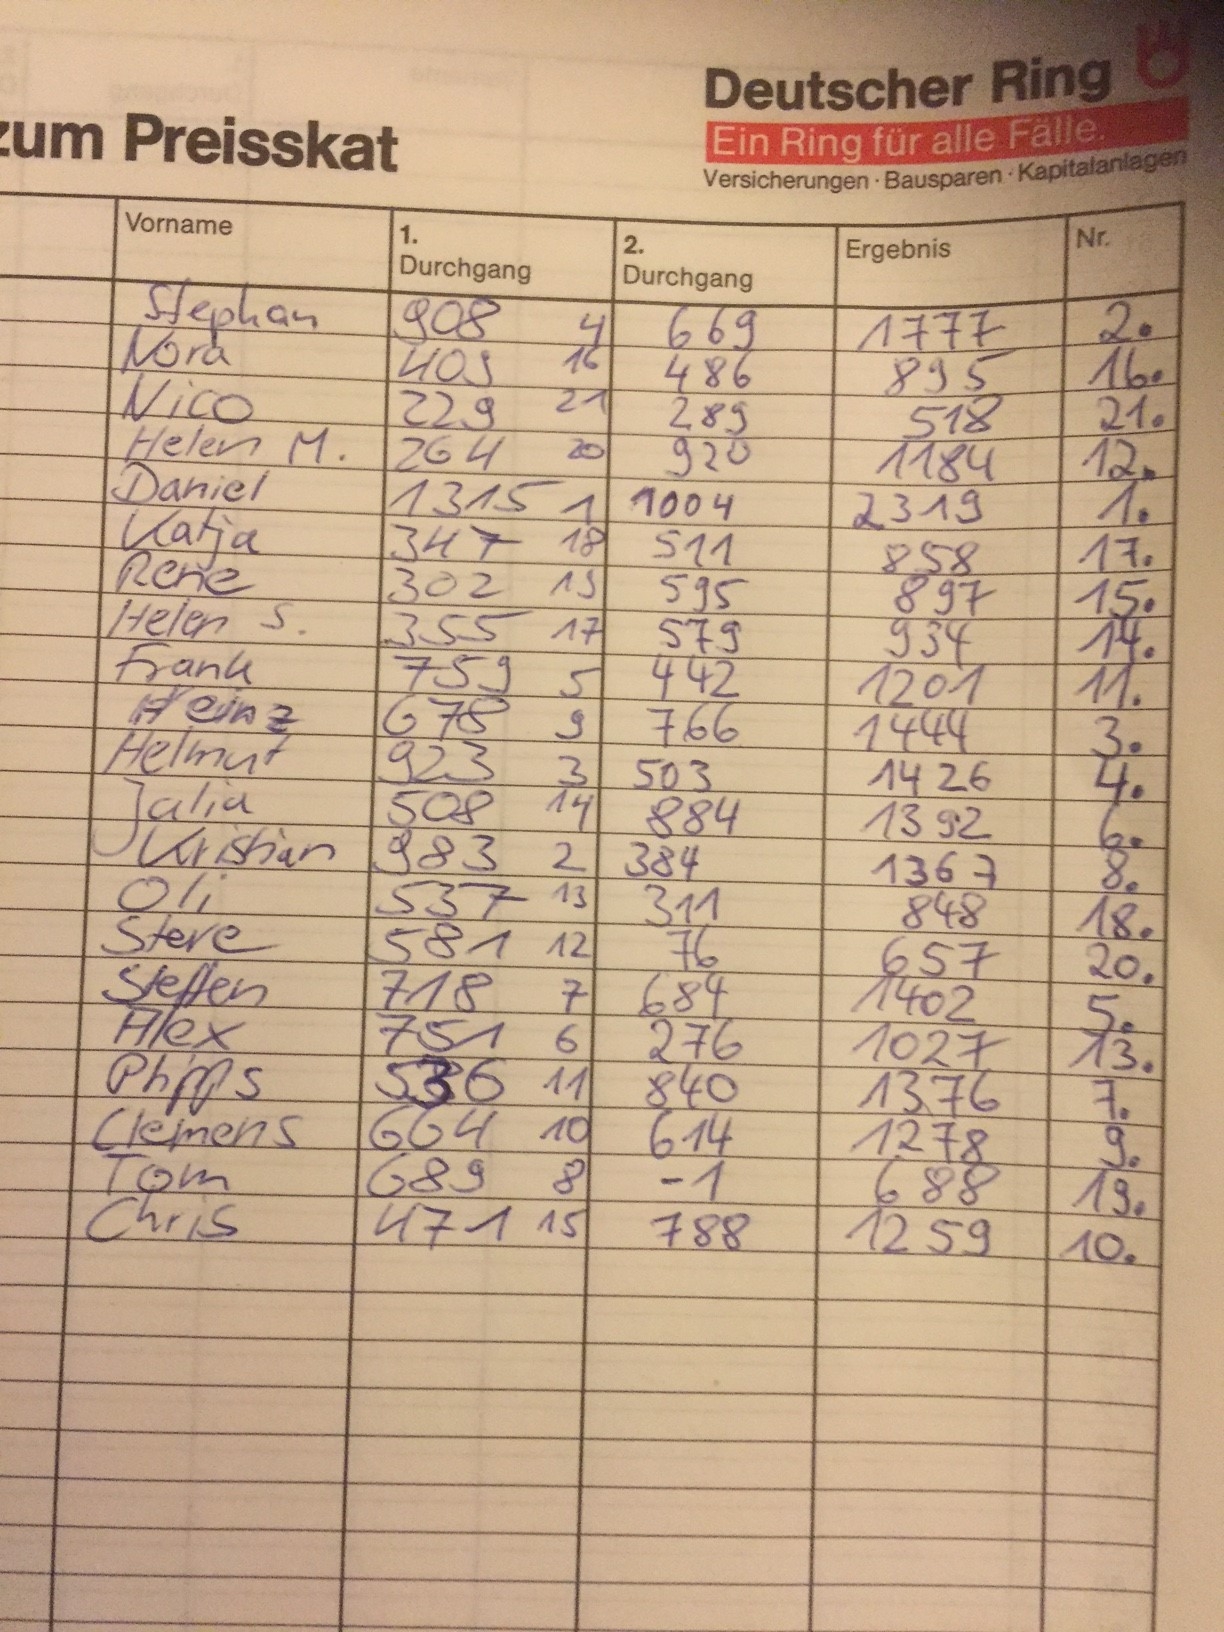 Deutscher Ring
Ein Ring für alle Fälle.
Versicherungen · Bausparen · Kapitalanlagen
zum Preisskat
Vorname 1. Durchgang 2. Durchgang Ergebnis Nr.
Stephan 908 4 669 1777 2.
Nora 409 16 486 895 16.
Nico 229 21 289 518 21.
Helen M. 264 20 920 1184 12.
Daniel 1315 1 1004 2319 1.
Katja 347 18 511 858 17.
Rene 302 19 595 897 15.
Helen S. 355 17 579 934 14.
Frank 759 5 442 1201 11.
Heinz 678 9 766 1444 3.
Helmut 923 3 503 1426 4.
Julia 508 14 884 1392 6.
Kristian 983 2 384 1367 8.
Oli 537 13 311 848 18.
Steve 581 12 76 657 20.
Steffen 718 7 684 1402 5.
Alex 751 6 276 1027 13.
Phipps 536 11 840 1376 7.
Clemens 664 10 614 1278 9.
Tom 689 8 -1 688 19.
Chris 471 15 788 1259 10.